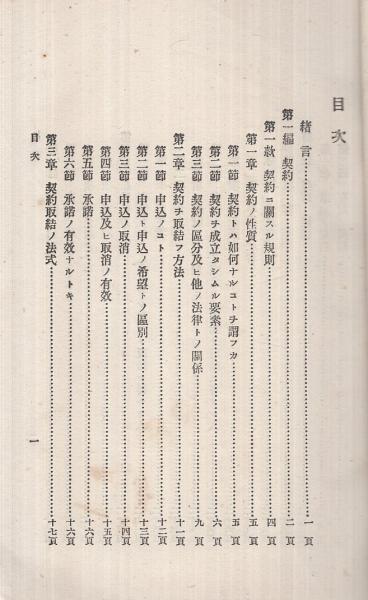 目次
緒言…………一頁
第一編 契約…………二頁
第一款 契約ニ關スル規則…………四頁
第一章 契約ノ性質…………五頁
第一節 契約トハ如何ナルコトヲ謂フカ…………五頁
第二節 契約ヲ成立タシムル要素…………六頁
第三節 契約ノ區分及ヒ他ノ法律トノ關係…………九頁
第二章 契約ヲ取結フ方法…………十一頁
第一節 申込ノコト…………十二頁
第二節 申込ト申込ノ希望トノ區別…………十三頁
第三節 申込ノ取消…………十四頁
第四節 申込及ヒ取消ノ有效…………十五頁
第五節 承諾…………十六頁
第六節 承諾ノ有效ナルトキ…………十六頁
第三章 契約取結ノ法式…………十七頁
目次
一